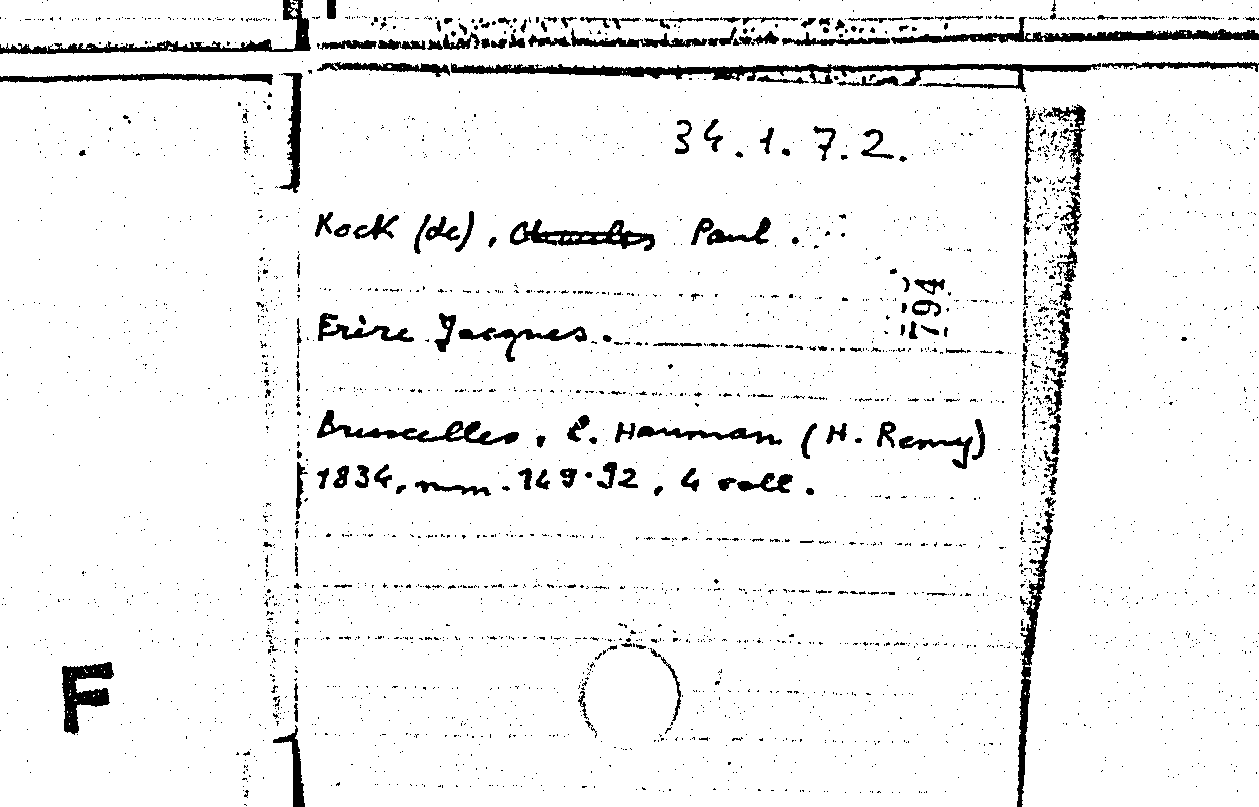 34.1.7.2.
Kock (de), Charles Paul.
794
Frère Jacques.
Bruxelles, L. Hauman (H. Remy)
1834, mm. 149·92, 4 voll.
F